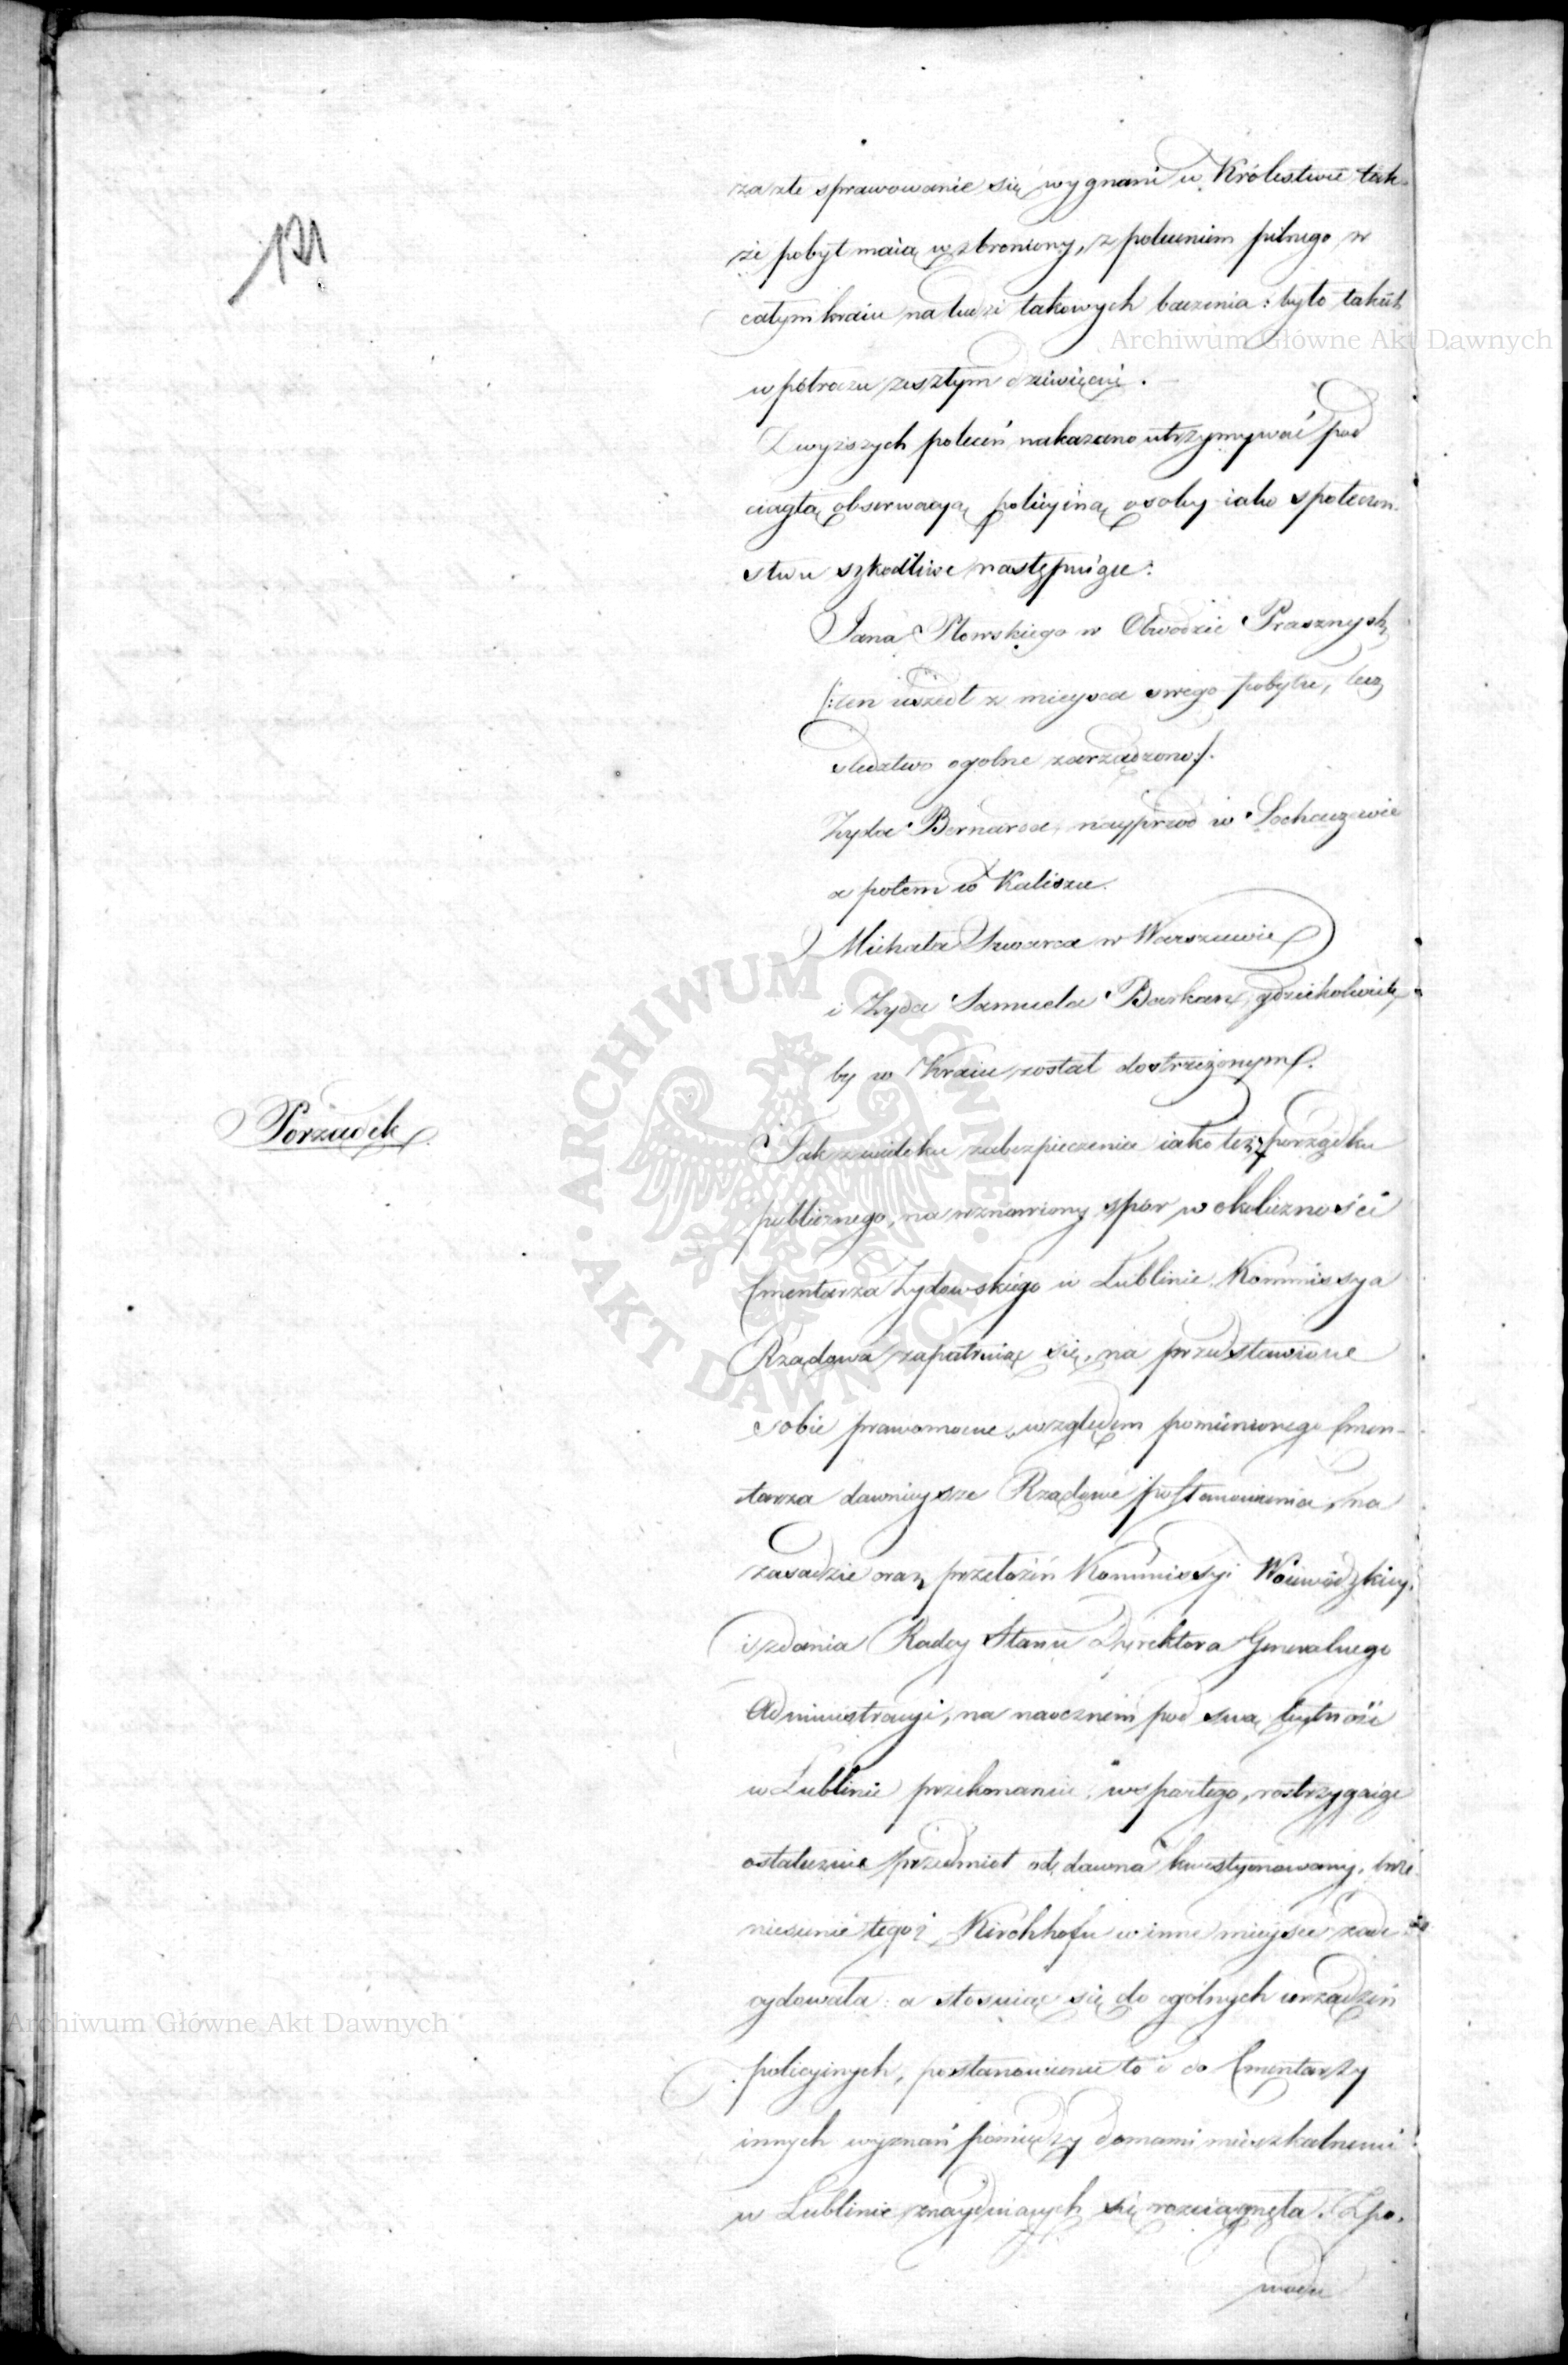 131
za złe sprawowanie się wygnani w Królestwie tak-
że pobyt maią wzbroniony, z poleceniem pilnego w
całym kraiu na ludzi takowych baczenia: było takich
w półroczu zeszłym dziewięciu.
Z wyższych poleceń nakazano utrzymywać pod
ciągłą obserwacyą policyiną osoby iako społeczeń-
stwu szkodliwe następuiące:
Jana w Obwodzie Prasznysk:
/:ten uszedł z mieysca swego pobytu, lecz
śledztwo ogólne zarządzono:/.
Żyda Bernarda, nayprzód w Sochaczewie
a potem w Kaliszu.
Michała Szwarca w Warszawie
i Żyda Samuela Barkan, gdziekolwiek
by w Kraiu został dostrzeżonym.
Porządek
Tak z widoku zabezpieczenia iako też porządku
publicznego, na wznowiony spór w okoliczności
Cmentarza Żydowskiego w Lublinie, Kommissya
Rządowa zapatruiąc się, na przedstawione
sobie prawomocne, względem pomienionego Cmen-
tarza dawnieysze Rządowe postanowienia, na
zasadzie oraz przełożeń Kommissyi Woiewódzkiey,
i zdania Radcy Stanu Dyrektora Generalnego
Administracyi, na naocznem pod swą bytność
w Lublinie przekonaniu, wspartego, rostrzygaiąc
ostatecznie przedmiot od dawna kwestyonowany,
niesienie tegoż Kirchhofu w inne mieysce zade-
cydowała: a stosuiąc się do ogólnych urządzeń
policyinych, postanowienie to i do Cmentarzy
innych wyznań pomiędzy domami mieszkalnemi
w Lublinie znayduiących się rozciągnęła. Z po-
wodu
Archiwum Główne Akt Dawnych
ARCHIWUM GŁÓWNE AKT DAWNYCH
Archiwum Główne Akt Dawnych